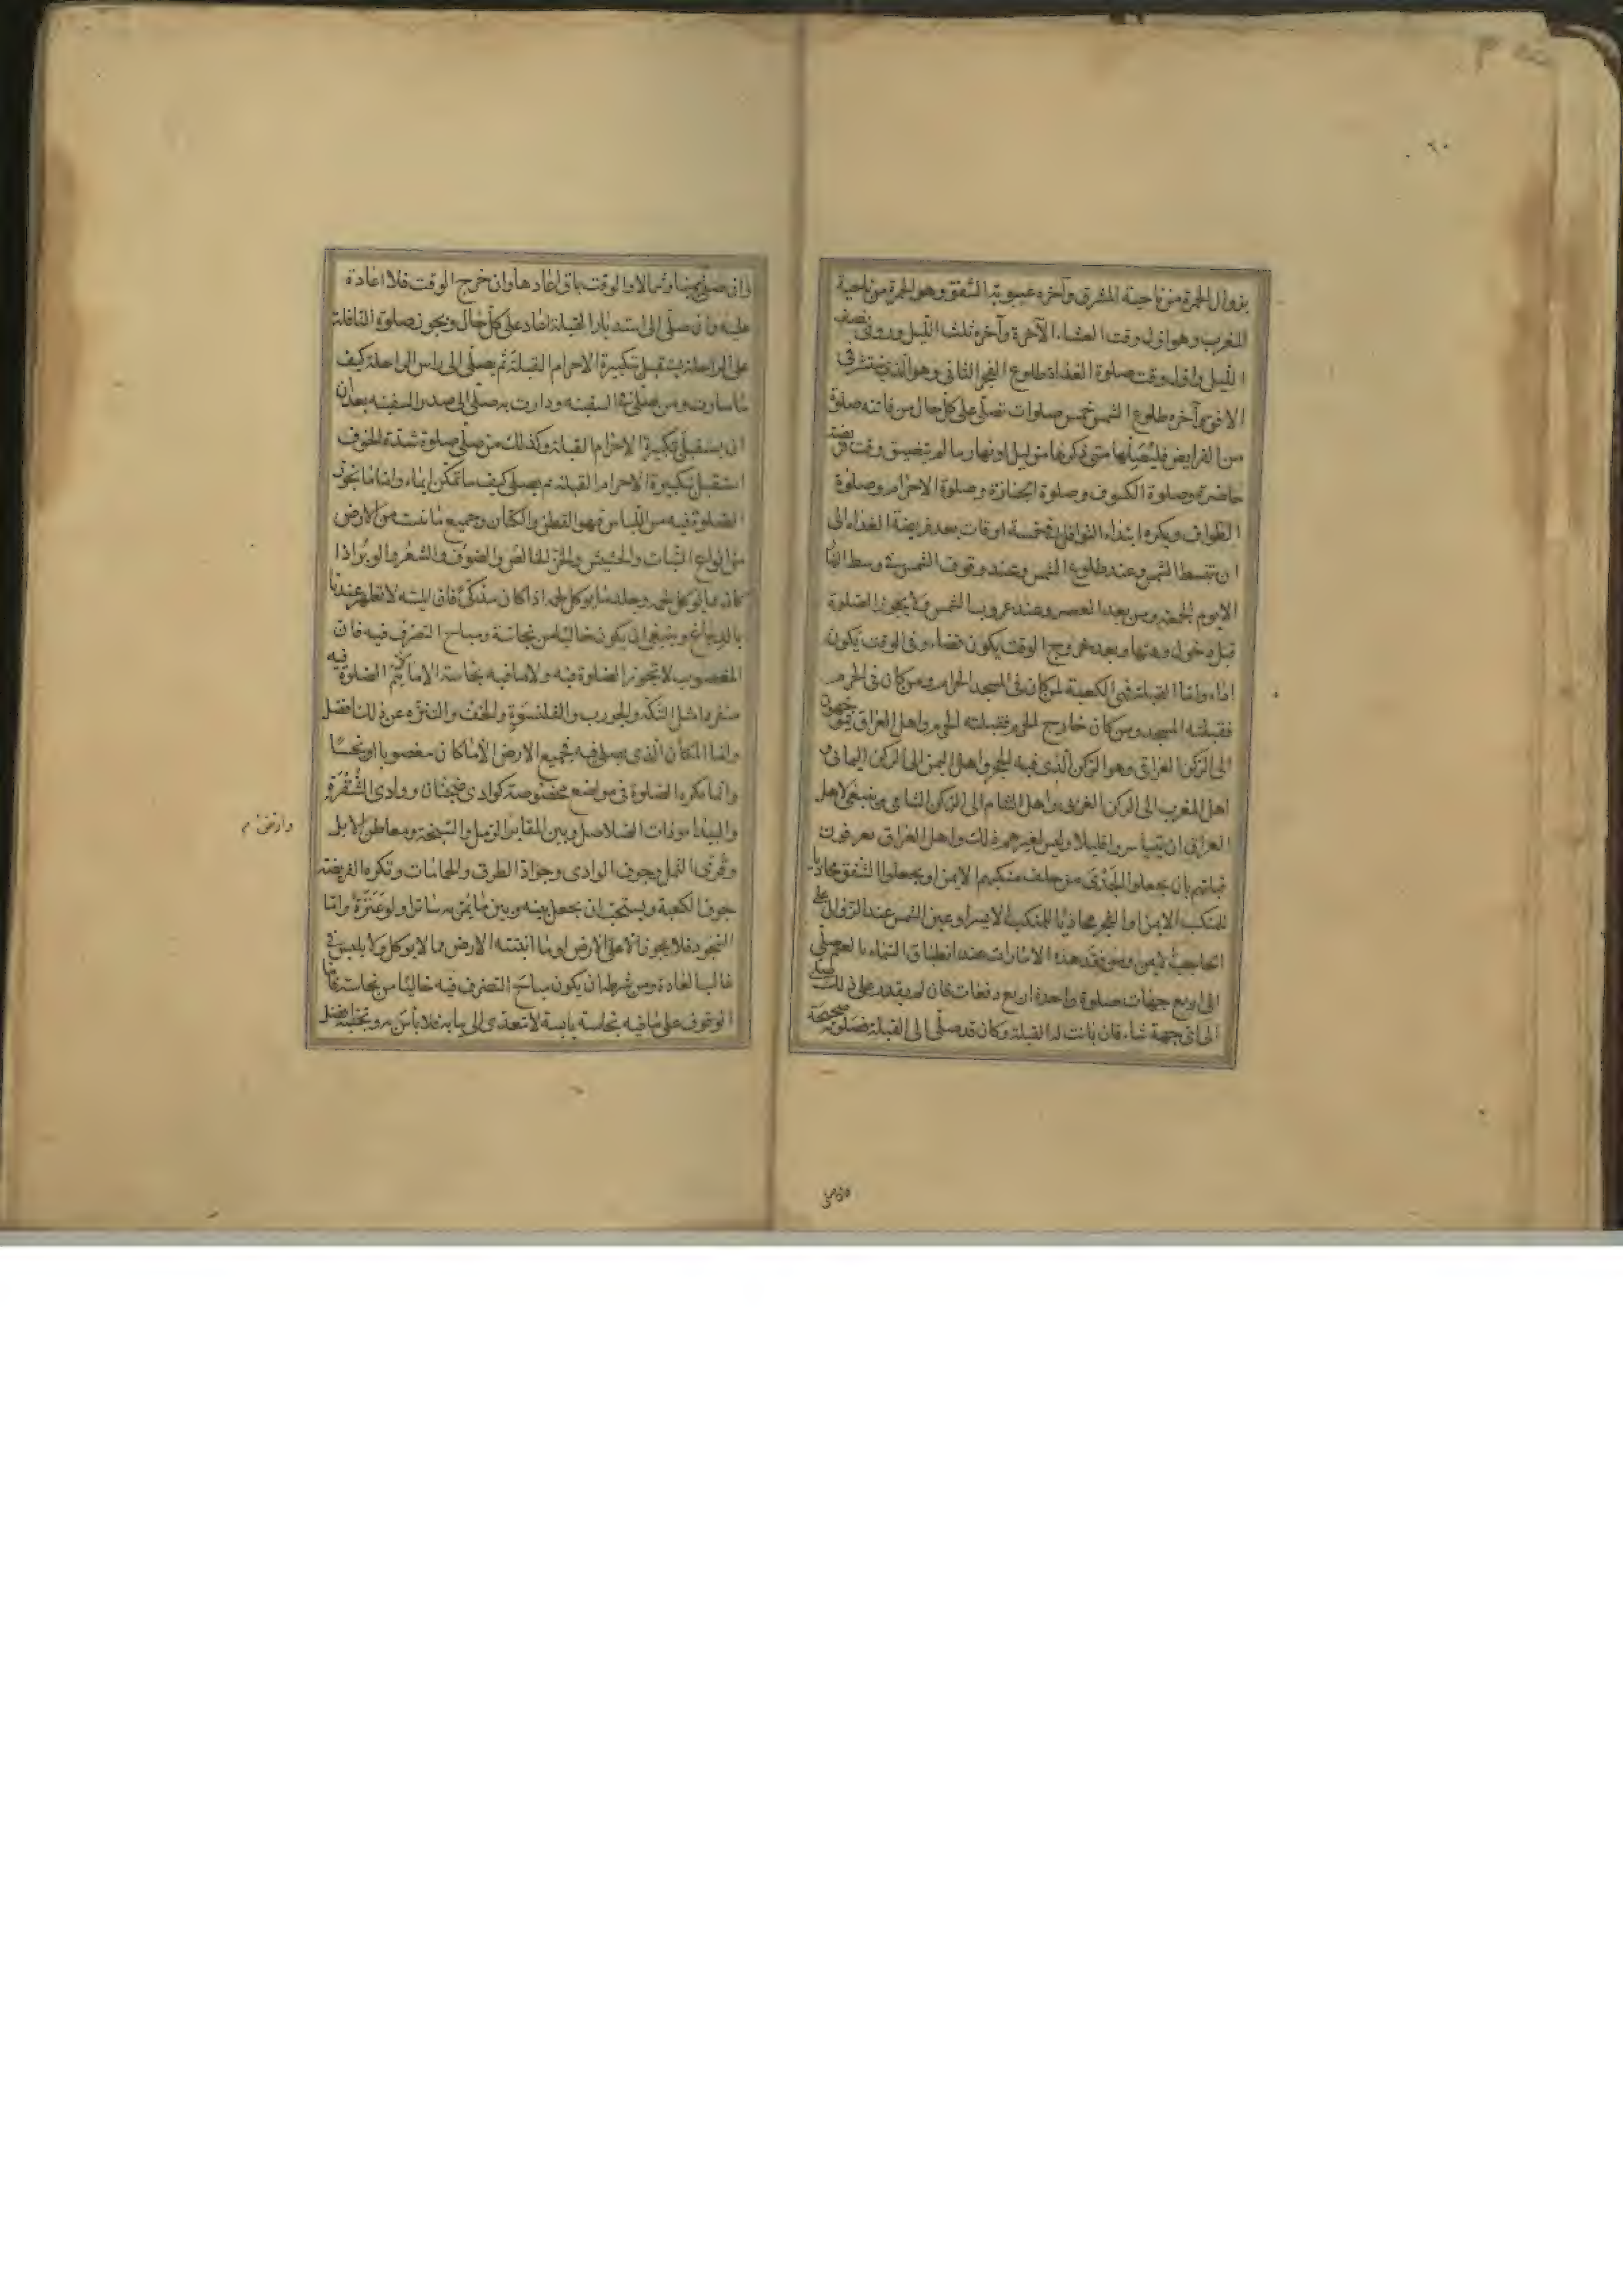 ٦٠
بزوال الحمرة من ناحية المشرق وآخره غيبوبة الشفق وهو الحمرة من ناحية
المغرب وهو اول وقت العشاء الآخرة وآخره ثلث الليل وروى نصف
الليل واول وقت صلوة الغداة طلوع الفجر الثانى وهو الذى ينتشر فى
الافق وآخره طلوع الشمس خمس صلوات تصلى على كل حال من فاتته صلوة
من الفرايض فليصلها متى ذكرها من ليل او نهار ما لم يتضيق وقت فريضة
حاضرة وصلوة الكسوف وصلوة الجنازة وصلوة الاحرام وصلوة
الطواف ويكره ابتداء النوافل فى خمسة اوقات بعد فريضة الغداة الى
ان تنبسط الشمس وعند طلوع الشمس وعند وقوف الشمس فى وسط النهار
الا يوم الجمعة ومن بعد العصر وعند غروب الشمس ولا يجوز الصلوة
قبل دخول وقتها وبعد خروج الوقت يكون قضاء وفى الوقت يكون
اداء واما القبلة فهى الكعبة لمن كان فى المسجد الحرام ومن كان فى الحرم
فقبلته المسجد ومن كان خارج الحرم فقبلته الحرم واهل العراق يتوجهون
الى الركن العراقى وهو الركن الذى فيه الحجر واهل اليمن الى الركن اليمانى و
اهل المغرب الى الركن الغربى واهل الشام الى الركن الشامى وينبغى لاهل
العراق ان يتياسروا قليلا وليس لغيرهم ذلك واهل العراق يعرفون
قبلتهم بان يجعلوا الجدى من خلف منكبهم الايمن او يجعلوا الشفق محاذيا
للمنكب الايمن او الفجر محاذيا للمنكب الايسر او عين الشمس عند الزوال على
الحاجب الايمن ومن فقد هذه الامارات عند انطباق السماء بالغيم صلى
الى اربع جهات صلوة واحدة اربع دفعات فان لم يقدر على ذلك صلى
الى اى جهة شاء فان بانت له القبلة وكان قد صلى الى القبلة فصلوته صحيحة
وان صلى
وان صلى يمينا وشمالا والوقت باق اعادها وان خرج الوقت فلا اعادة
عليه وان صلى الى استدبار القبلة اعاد على كل حال ويجوز صلوة النافلة
على الراحلة يستقبل تكبيرة الاحرام القبلة ثم يصلى الى راس الراحلة كيف
ما سارت ومن صلى فى السفينة ودارت به صلى الى صدر السفينة بعد ان
ان يستقبل تكبيرة الاحرام القبلة وكذلك من صلى صلوة شدة الخوف
استقبل تكبيرة الاحرام القبلة ثم يصلى كيف ما تمكن ايماء واما ما يجوز
الصلوة فيه من اللباس فهو القطن والكتان وجميع ما نبت من الارض
من انواع النبات والحشيش والخز الخالص والصوف والشعر والوبر اذا
كان مما يوكل لحمه وجلد ما يوكل لحمه اذا كان مذكى فان الميتة لا تطهر عندنا
بالدباغ وينبغى ان يكون خاليا من نجاسة ومباح التصرف فيه فان
المغصوب لا تجوز الصلوة فيه ولا ما فيه نجاسة الا ما لا يتم الصلوة فيه
منفردا مثل التكة والجورب والقلنسوة والخف والتنزه عن ذلك افضل
واما المكان الذى يصلى فيه فجميع الارض الا ما كان مغصوبا او نجسا
وانما يكره الصلوة فى مواضع مخصوصة كوادى ضجنان ووادى الشقرة
والبيداء وذات الصلاصل وبين المقابر الرمل والسبخة ومعاطن الابل
وارض م
وقرى النمل وجوف الوادى وجواد الطرق والحمامات وتكره الفريضة
جوف الكعبة ويستحب ان يجعل بينه وبين ما يمر به ساترا ولو عنزة واما
السجود فلا يجوز الا على الارض او ما انبتته الارض مما لا يوكل ولا يلبس فى
غالب العادة ومن شرطه ان يكون مباح التصرف فيه خاليا من نجاسة فاما
الوقوف على ما فيه نجاسة يابسة لا تتعدى الى ثيابه فلا باس به وتجنبه افضل